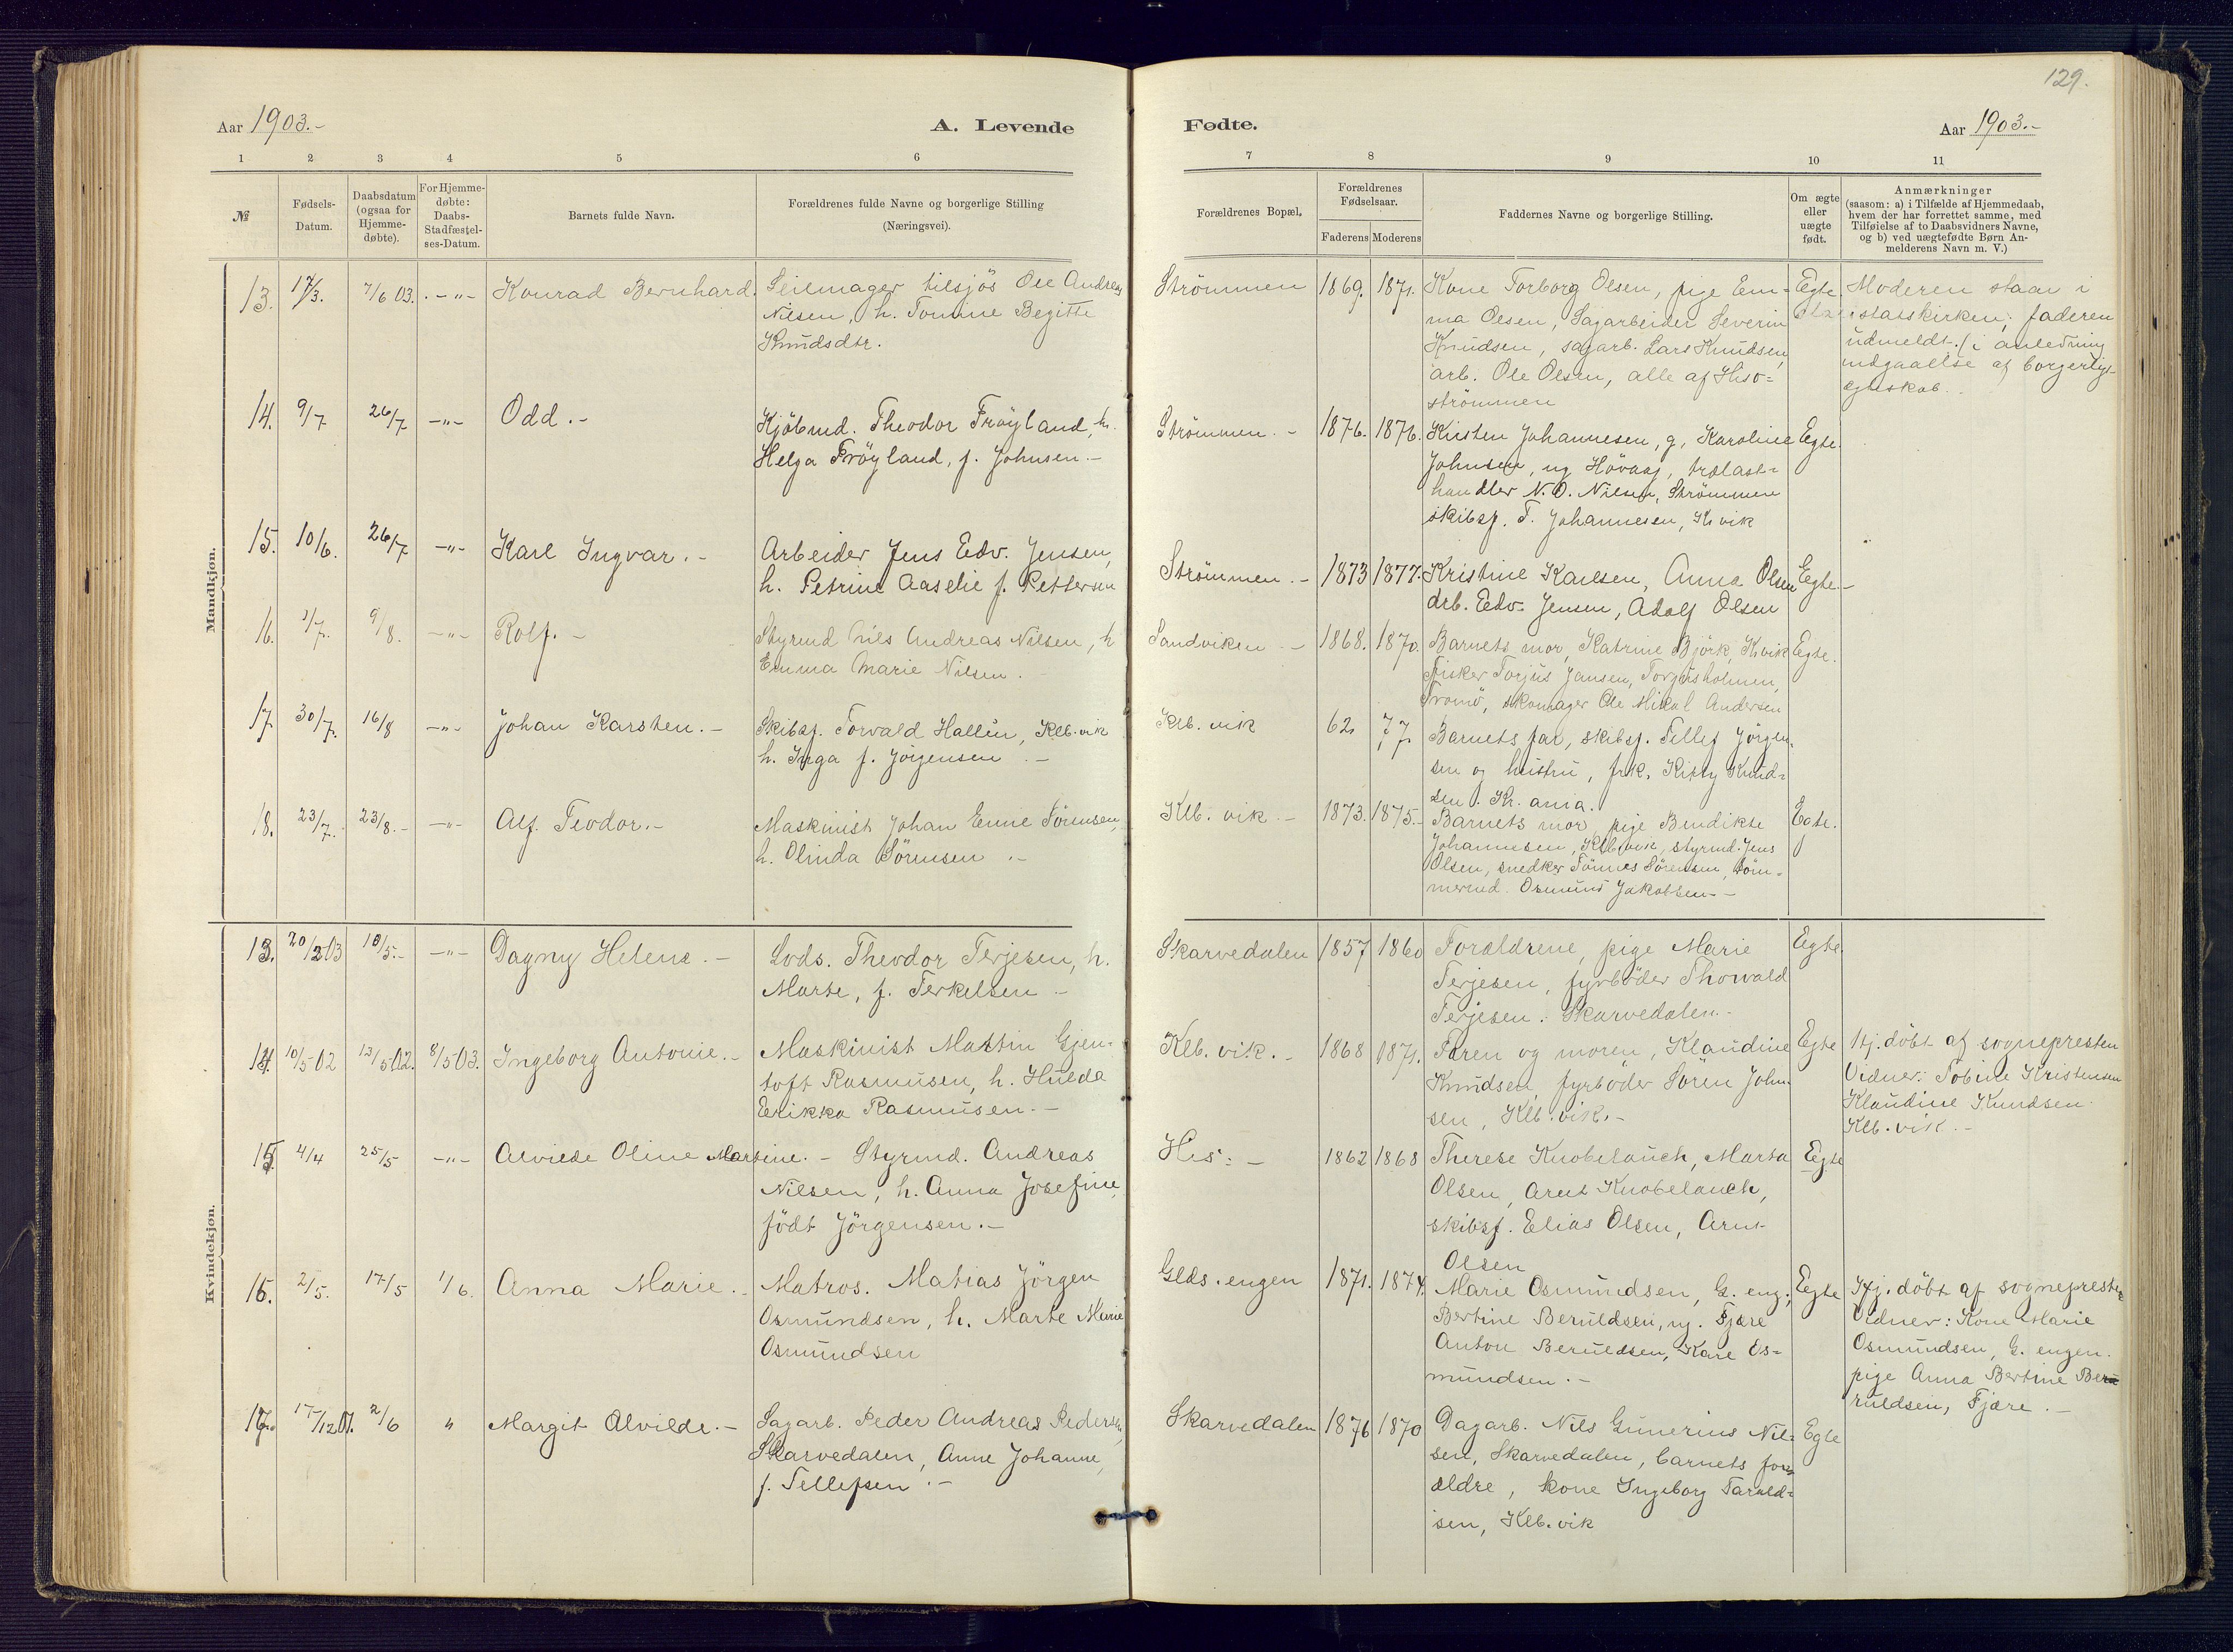 129.
Aar 1903.-
A. Levende
Fødte.
Aar 1903.-
1 2 3 4 5 6 7 8 9 10 11
№
Fødsels-
Datum.
Daabsdatum
(ogsaa for
Hjemme-
døbte).
For Hjemme-
døbte:
Daabs-
Stadfæstel-
ses-Datum.
Barnets fulde Navn.
Forældrenes fulde Navne og borgerlige Stilling
(Næringsvei).
Forældrenes Bopæl.
Forældrenes
Fødselsaar.
Faderens Moderens
Faddernes Navne og borgerlige Stilling.
Om ægte
eller
uægte
født.
Anmærkninger
(saasom: a) i Tilfælde af Hjemmedaab,
hvem der har forrettet samme, med
Tilføielse af to Daabsvidners Navne,
og b) ved uægtefødte Børn An-
melderens Navn m. V.)
Mandkjøn.
13. 17/3. 7/6 03. -"- Konrad Bernhard. Seilmager tilsjös Ole Andreas
Nilsen, h. Tomine Begitte
Knudsdtr.
Strömmen 1869. 1871. Kone Torborg Olsen, pige Em-
ma Olsen, Sagarbeider Severin
Knudsen, sagarb. Lars Knudsen,
arb. Ole Olsen, alle af Hisö-
strömmen
Egte.
Moderen staar i
statskirken; faderen
udmeldt. (i anledning
indgaaelse af borgerligt
egteskab.
14. 9/7 26/7 -"- Odd.- Kjöbmd. Theodor Fröyland, h.
Helga Fröyland, f. Johnsen.-
Strömmen.- 1876. 1876. Kirsten Johannesen, g, Karoline
Johnsen, ug Hövaag, trælast-
handler N. O. Nilsen, Strömmen
skibsf. T. Johannesen, K.vik
Egte.
15. 10/6. 26/7 -"- Karl Ingvar.- Arbeider Jens Edv. Jensen,
h. Petrine Aaselie f. Pettersen
Strömmen.- 1873 1877. Kristine Karlsen, Anna Olsen
arb. Edv. Jensen, Adolf Olsen
Egte.-
16. 1/7. 9/8. -"- Rolf.- Styrmd Nils Andreas Nilsen, h
Emma Marie Nilsen.
Sandviken.- 1868. 1870. Barnets mor, Katrine Björk, K.vik
Fisker Torjus Jansen, Torjusholmen,
Tromö, skomager Ole Mikal Andersen
Egte.
17. 30/7. 16/8 -"- Johan Karsten.- Skibsf. Torvald Hallin, Klb.vik
h. Inga f. Jörgensen.-
Klb. vik 62. 77. Barnets far, skibsf. Tellef Jörgen-
sen og hustru, frk. Kitty Knud-
sen. Kr.ania.
18. 23/7. 23/8.- -"- Alf Teodor.- Maskinist Johan Enne Sörensen,
h. Olinda Sörensen.-
Klb. vik.- 1873. 1875.- Barnets mor, pige Bendikte
Johannesen, Klb.vik, styrmd. Jens
Olsen, snedker Tönnes Sörensen, töm-
mermd. Osmund Jakobsen.-
Egte.
Kvindekjøn.
13. 20/2 03 10/5.- -"- Dagny Helene.- Lods. Theodor Terjesen, h.
Marte, f. Terkelsen-
Skarvedalen 1857 1860 Forældrene, pige Marie
Terjesen, fyrböder Thorvald
Terjesen. Skarvedalen.-
Egte.
14. 10/5 02 13/5 02. 8/5 03. Ingeborg Antonie.- Maskinist Martin Gjen-
toft Rasmusen, h. Hulda
Erikka Rasmusen.-
Klb. vik.- 1868 1871. Faren og moren, Klaudine
Knudsen, fyrböder Sören John-
sen, Klb.vik.-
Egte
Hj. döbt af sognepresten
Vidner: Tobine Kristensen
Klaudine Knudsen.
Klb. vik.-
15. 4/4 25/5 -"- Alvilde Oline Martine.- Styrmd. Andreas
Nilsen, h. Anna Josefine,
födt Jörgensen.-
His:- 1862 1868 Therese Knobelauch, Marta
Olsen, Arnt Knobelauch,
skibsf. Elias Olsen, Arnt
Olsen
Egte
16. 2/5. 17/5 1/6. Anna Marie.- Matros. Matias Jörgen
Osmundsen, h. Marte Marie
Osmundsen
Glds.engen 1871. 1874. Marie Osmundsen, G. eng.,
Bertine Beruldsen, ug. Fjære
Anton Beruldsen, Kare Os-
mundsen.-
Egte
Hj. döbt af sognepresten
Vidner: Kone Marie
Osmundsen, G. engen.
pige Anna Bertine Be-
ruldsen, Fjære.-
17. 17/12 01. 2/6 " Margit Alvilde.- Sagarb. Peder Andreas Pedersen,
Skarvedalen, Anne Johanne,
f. Tellefsen.-
Skarvedalen 1876 1870 Dagarb. Nils Gunerius Nil-
sen, Skarvedalen, barnets for-
ældre, kone Ingeborg Tarald-
sen, Klb.vik
Egte